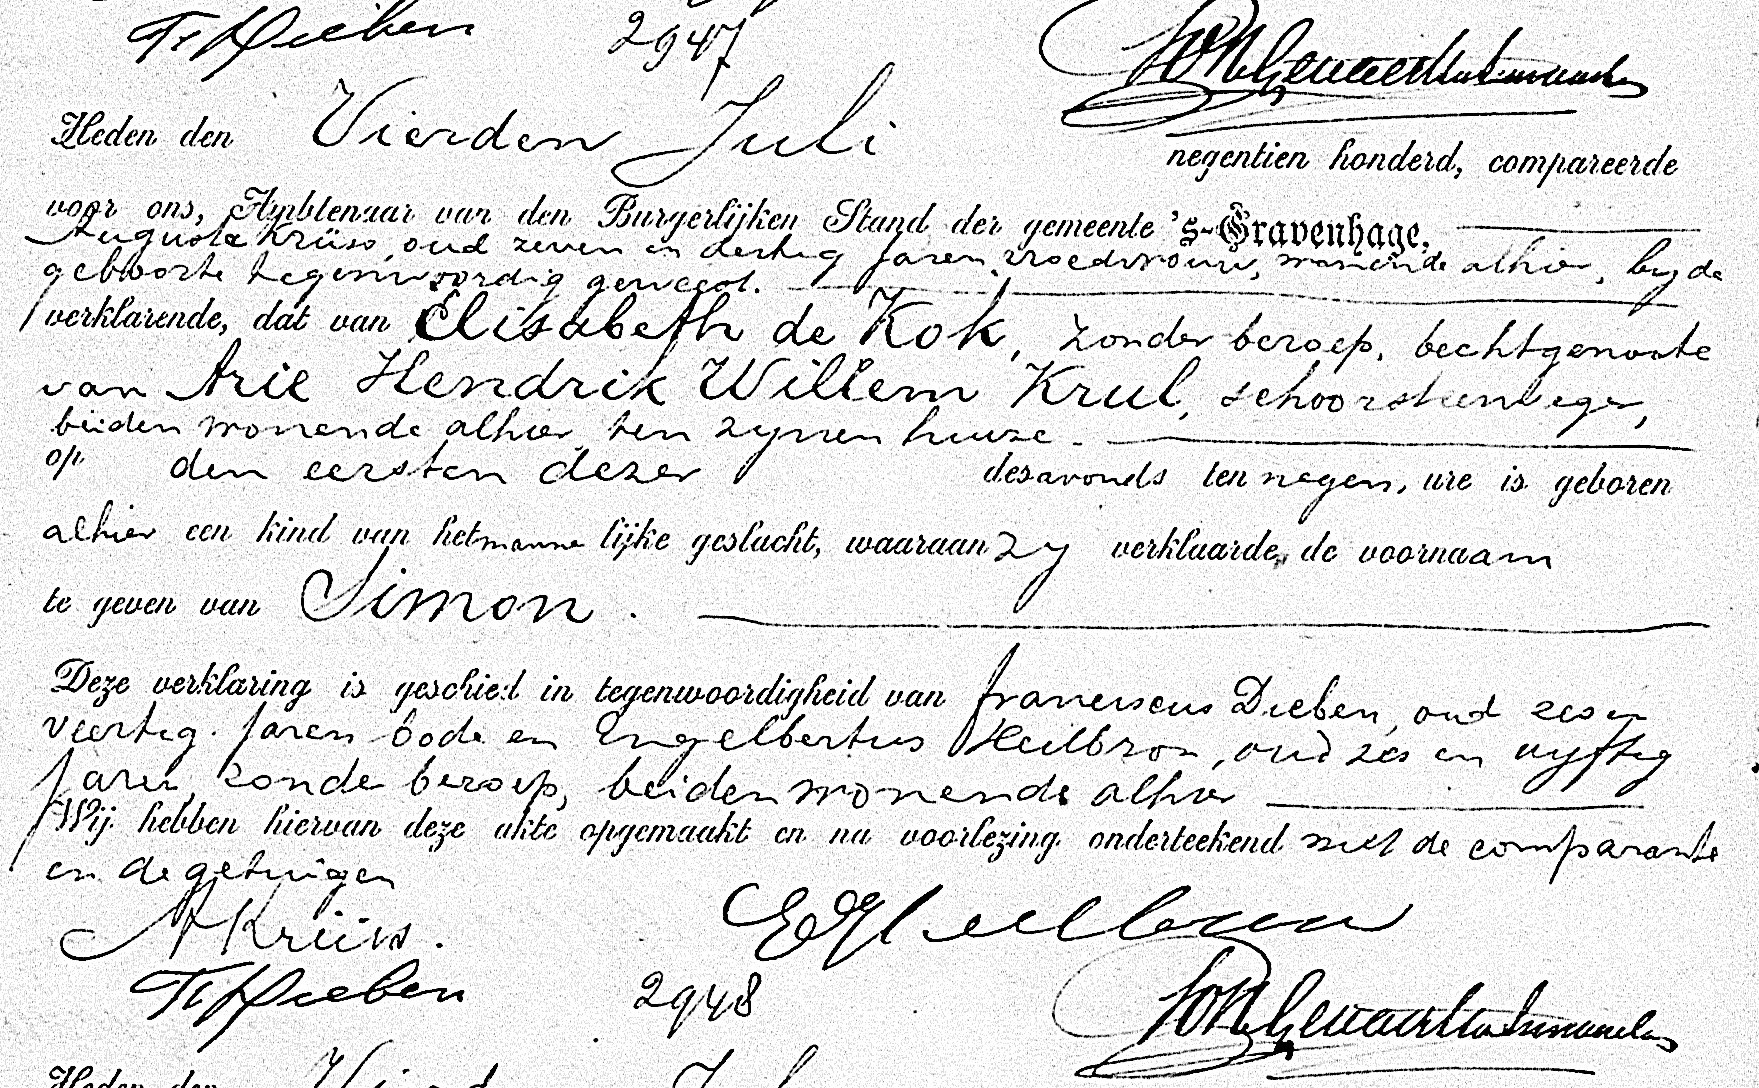 Fr Dieben 2947
Heden den Vierden Juli negentien honderd, compareerde
voor ons, Ambtenaar van den Burgerlijken Stand der gemeente 's-Gravenhage,
Augusta Krüss, oud zeven en dertig jaren, vroedvrouw, wonende alhier, bij de
geboorte tegenwoordig geweest.
verklarende, dat van Elisabeth de Kok, zonder beroep, echtgenoote
van Arie Hendrik Willem Krul, schoorsteenveger,
beiden wonende alhier ten zynen huize.
op den eersten dezer des avonds ten negen, ure is geboren
alhier een kind van het mannelijke geslacht, waaraan zy verklaarde, de voornaam
te geven van Simon.
Deze verklaring is geschied in tegenwoordigheid van Franciscus Dieben, oud zes en
veertig jaren bode en Engelbertus Heilbron, oud zes en vyftig
jaren, zonder beroep, beiden wonende alhier
Wij hebben hiervan deze akte opgemaakt en na voorlezing onderteekend met de comparante
en de getuigen
A Krüss.
E Heilbron
Fr Dieben 2948
Heden den Vierden Juli